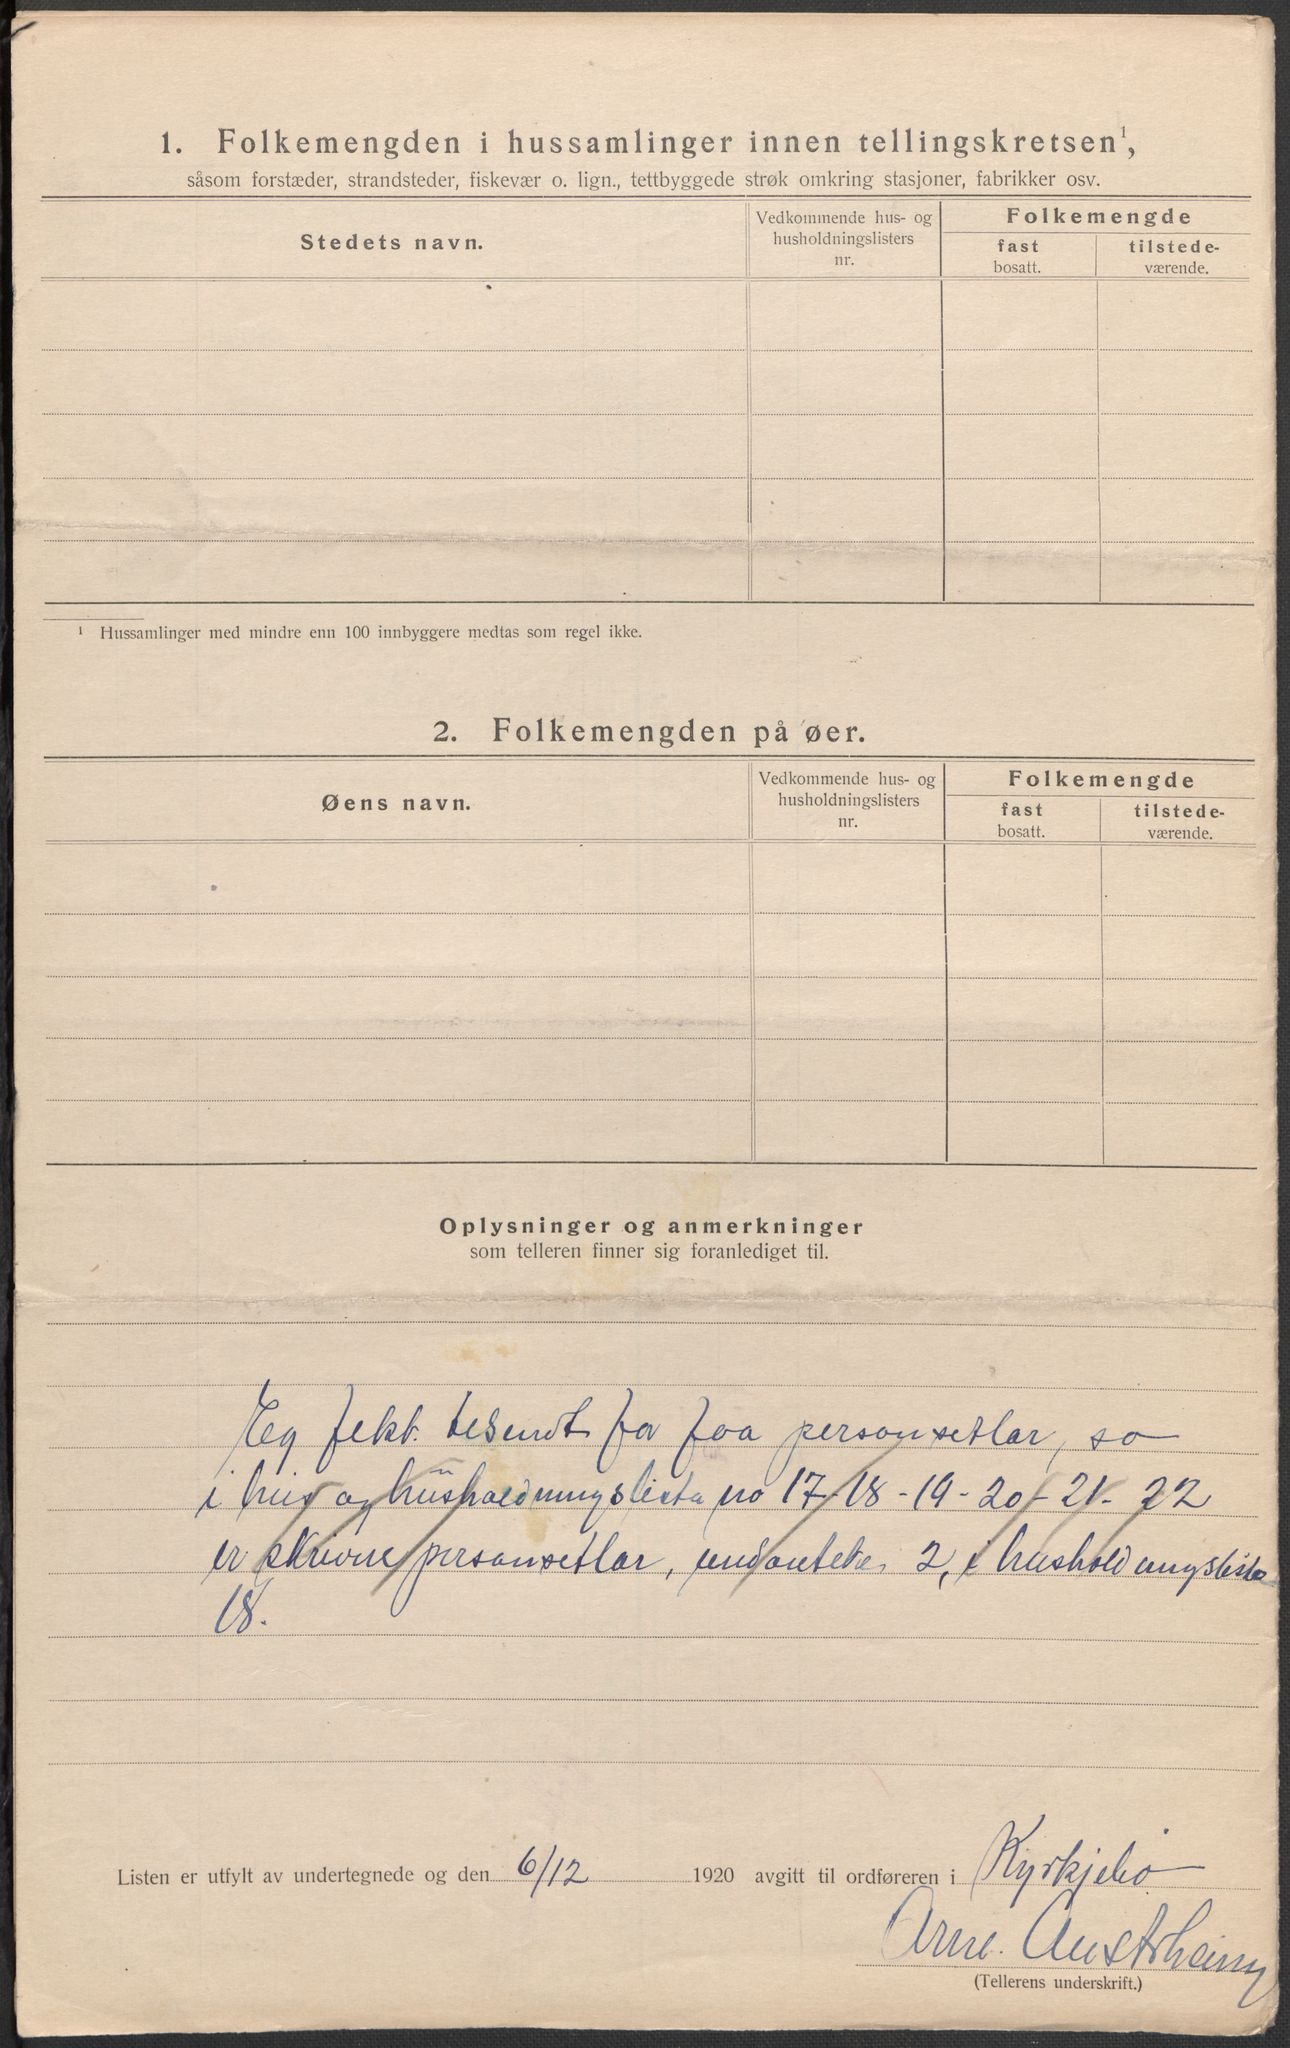 1. Folkemengden i hussamlinger innen tellingskretsen¹,
såsom forstæder, strandsteder, fiskevær o. lign., tettbyggede strøk omkring stasjoner, fabrikker osv.
Stedets navn.
Vedkommende hus- og
husholdningslisters
nr.
Folkemengde
fast
bosatt.
tilstede-
værende.
¹ Hussamlinger med mindre enn 100 innbyggere medtas som regel ikke.
2. Folkemengden på øer.
Øens navn.
Vedkommende hus- og
husholdningslisters
nr.
Folkemengde
fast
bosatt.
tilstede-
værende.
Oplysninger og anmerkninger
som telleren finner sig foranlediget til.
Eg fekk tilsendt for faa personsetlar, so
i hus og husholdningslista no 17-18-19-20-21-22
er skrivne personsetlar, undantekе 2, i husholdningslista
18.
Listen er utfylt av undertegnede og den 6/12 1920 avgitt til ordføreren i Kyrkjebø
Arne Austrheim
(Tellerens underskrift.)